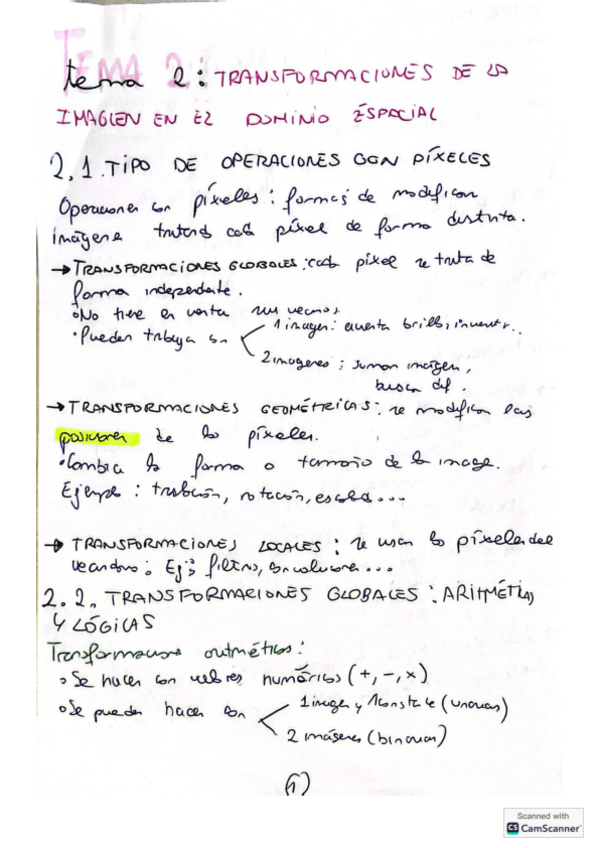 tema 2: TRANSFORMACIONES DE LA
IMAGEN EN EL DOMINIO ESPACIAL
2.1. TIPO DE OPERACIONES CON PÍXELES
Operaciones con píxeles: formas de modificar
imágenes tratando cada píxel de forma distinta.
→ TRANSFORMACIONES GLOBALES: cada píxel se trata de
forma independiente.
• No tiene en cuenta sus vecinos
• Pueden trabajar con
1 imagen: aumenta brillo, invertir..
2 imagenes: suman imagen,
buscan dif.
→ TRANSFORMACIONES GEOMÉTRICAS: se modifican las
posiciones de los píxeles.
• Cambia la forma o tamaño de la imagen.
Ejemplo: traslación, rotación, escalado...
→ TRANSFORMACIONES LOCALES: se usan los píxeles del
vecindario: Ej: filtros, convoluciones...
2.2. TRANSFORMACIONES GLOBALES: ARITMÉTICAS
Y LÓGICAS
Transformaciones aritméticas:
• Se hacen con valores numéricos (+, -, x)
• Se pueden hacer con
1 imagen y 1 constante (unarias)
2 imágenes (binarias)
(1)
Scanned with
CS CamScanner